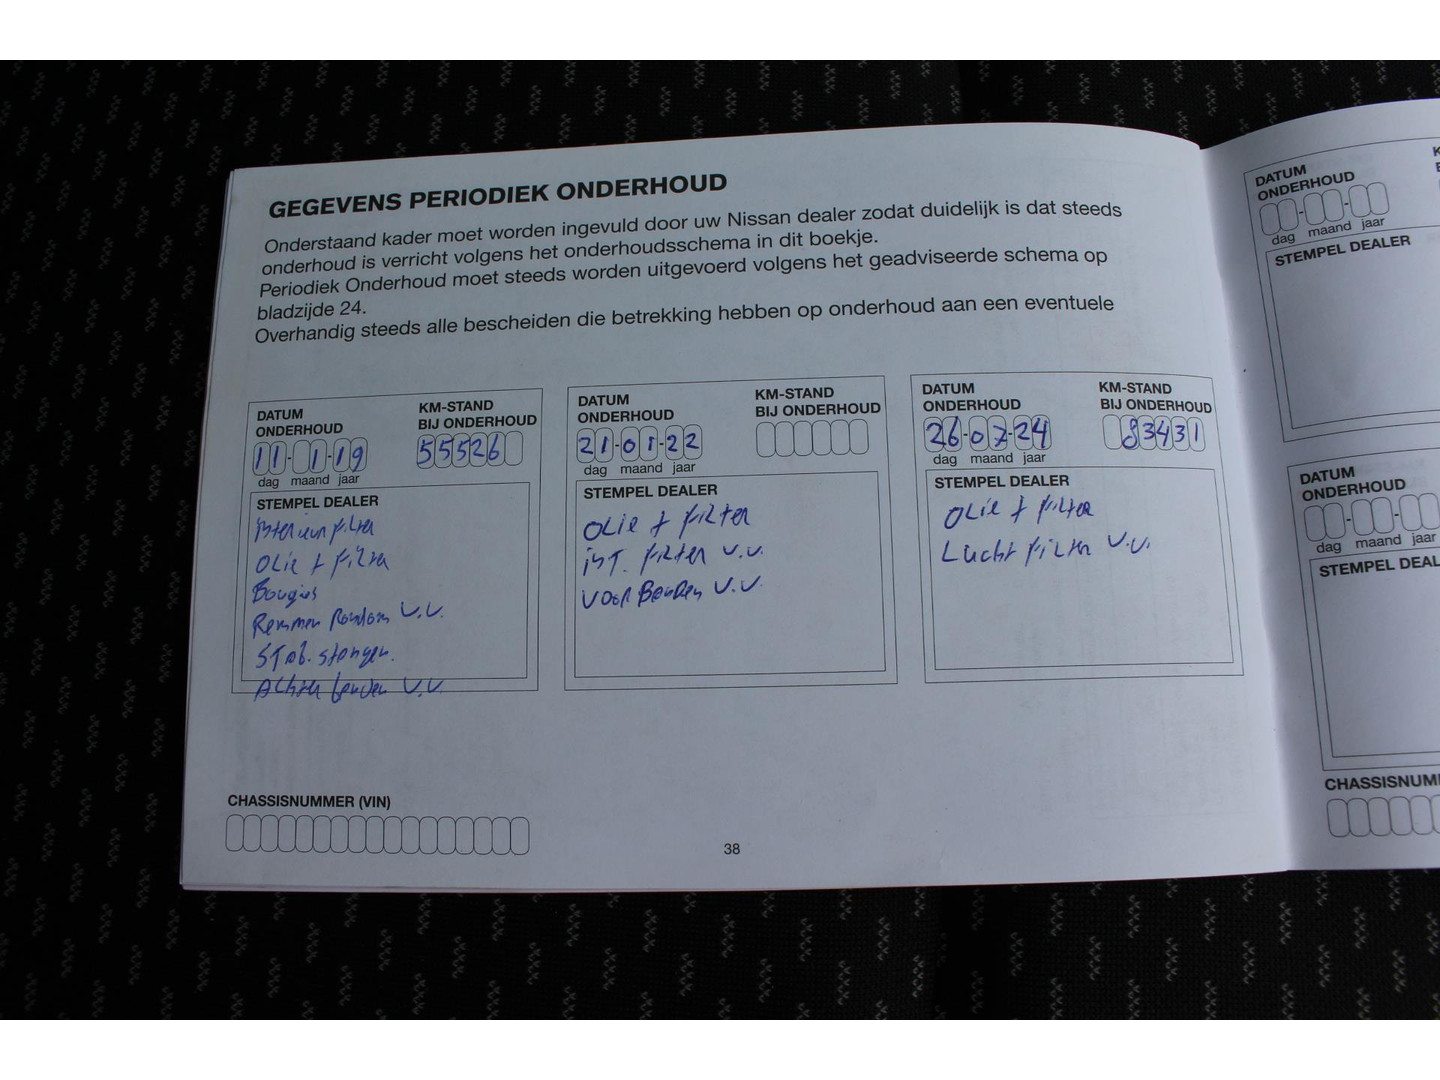 GEGEVENS PERIODIEK ONDERHOUD
Onderstaand kader moet worden ingevuld door uw Nissan dealer zodat duidelijk is dat steeds
onderhoud is verricht volgens het onderhoudsschema in dit boekje.
Periodiek Onderhoud moet steeds worden uitgevoerd volgens het geadviseerde schema op
bladzijde 24.
Overhandig steeds alle bescheiden die betrekking hebben op onderhoud aan een eventuele
DATUM
ONDERHOUD
KM-STAND
BIJ ONDERHOUD
11-1-19
55526
dag maand jaar
STEMPEL DEALER
interieur filter
OLie + filter
Bougies
Remmen Rondom V.V.
STab. stangen.
Achter banden V.V.
DATUM
ONDERHOUD
KM-STAND
BIJ ONDERHOUD
21-01-22
dag maand jaar
STEMPEL DEALER
OLie + filter
inT. filter V.V.
voor Banden V.V.
DATUM
ONDERHOUD
KM-STAND
BIJ ONDERHOUD
26-07-24
83431
dag maand jaar
STEMPEL DEALER
OLie + filter
Lucht filter V.V.
CHASSISNUMMER (VIN)
38
DATUM
ONDERHOUD
dag maand jaar
STEMPEL DEALER
DATUM
ONDERHOUD
dag maand jaar
STEMPEL DEAL
CHASSISNUM